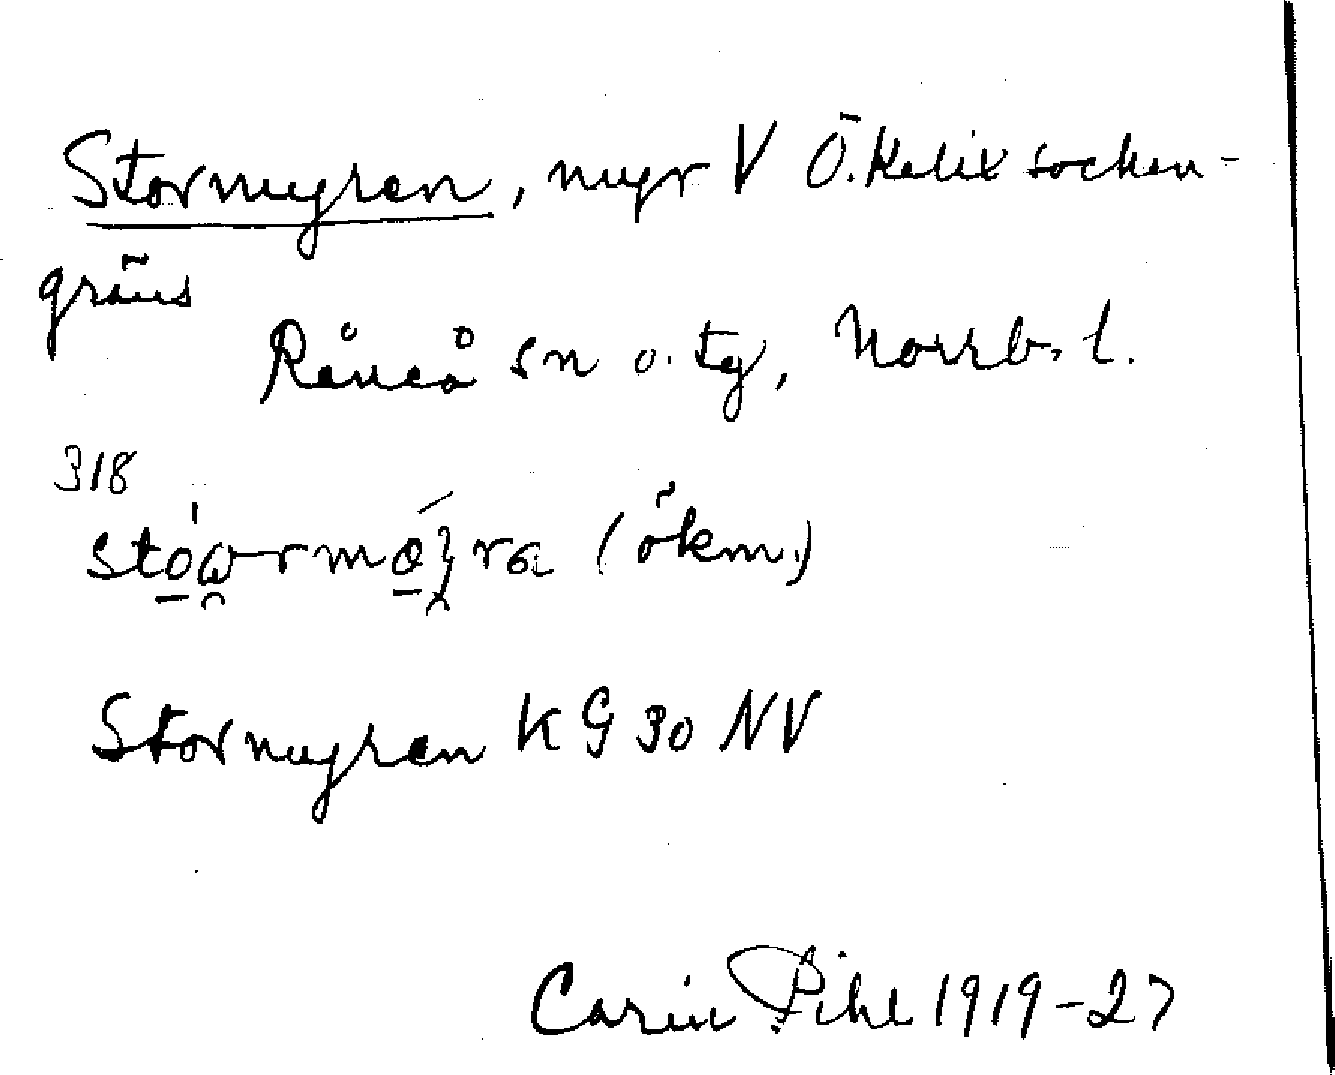 Stormyren, myr V Ö. Kalix socken-
gräns
Råneå sn o. tg, Norrb. l.
318
(ökm.)
Stormyren KG 30 NV
Carin Pihl 1919-27